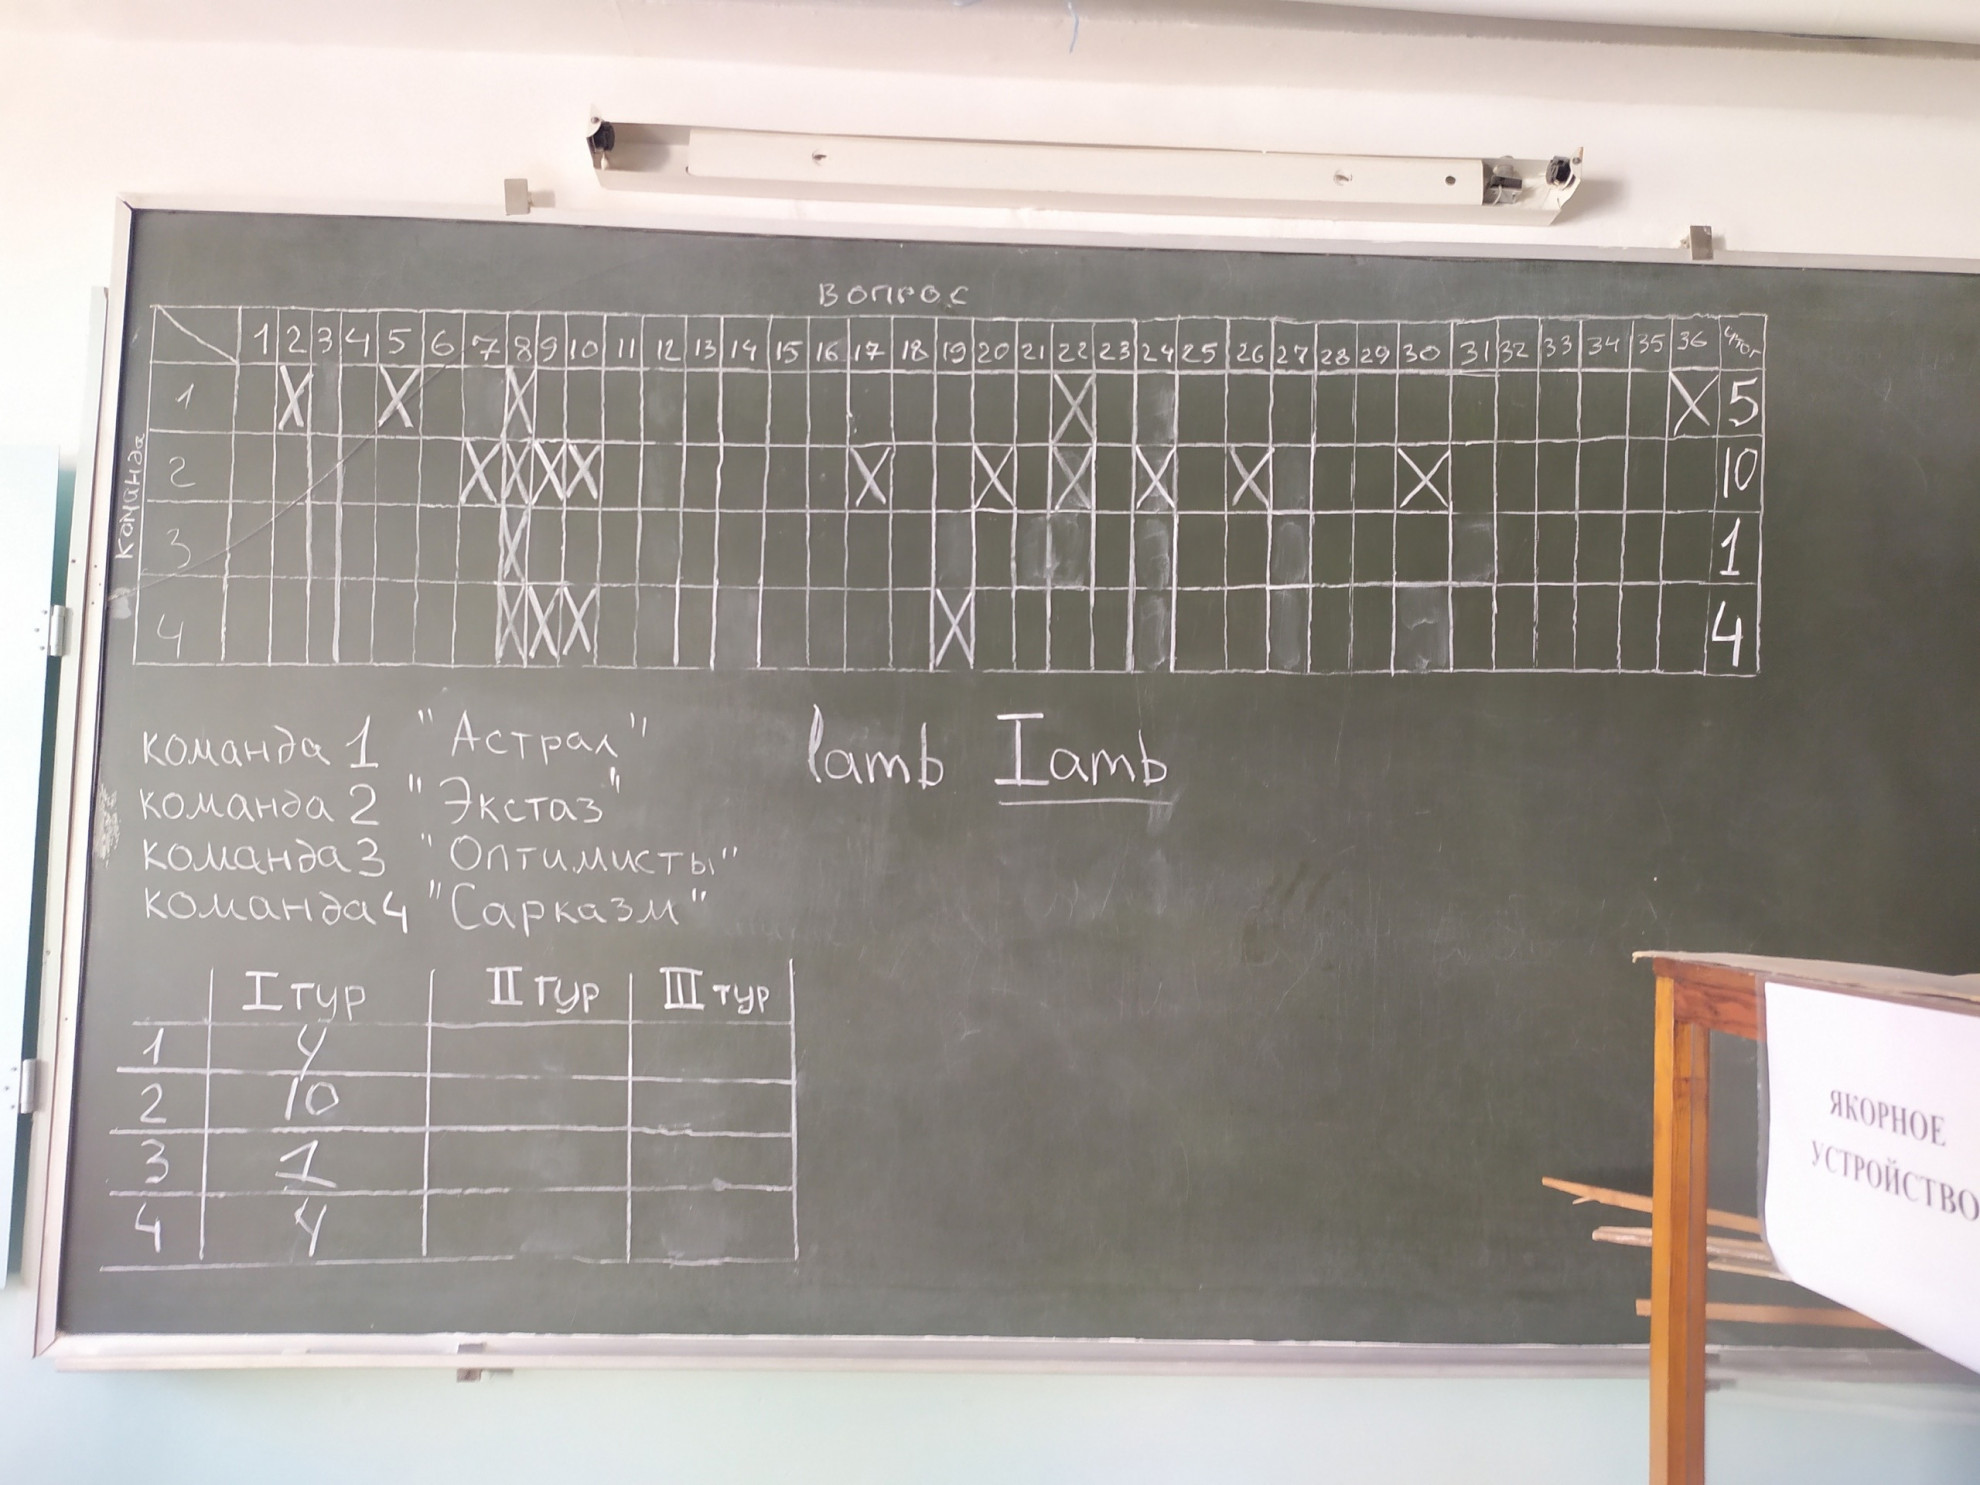 Вопрос
1 2 3 4 5 6 7 8 9 10 11 12 13 14 15 16 17 18 19 20 21 22 23 24 25 26 27 28 29 30 31 32 33 34 35 36 Итог
Команда
1 X X X X X 5
2 X X X X X X X X X X 10
3 X 1
4 X X X X 4
команда 1 "Астрал"
lamb Iamb
команда 2 "Экстаз"
команда 3 "Оптимисты"
команда 4 "Сарказм"
I тур II тур III тур
1 4
2 10
3 1
4 4
ЯКОРНОЕ
УСТРОЙСТВО